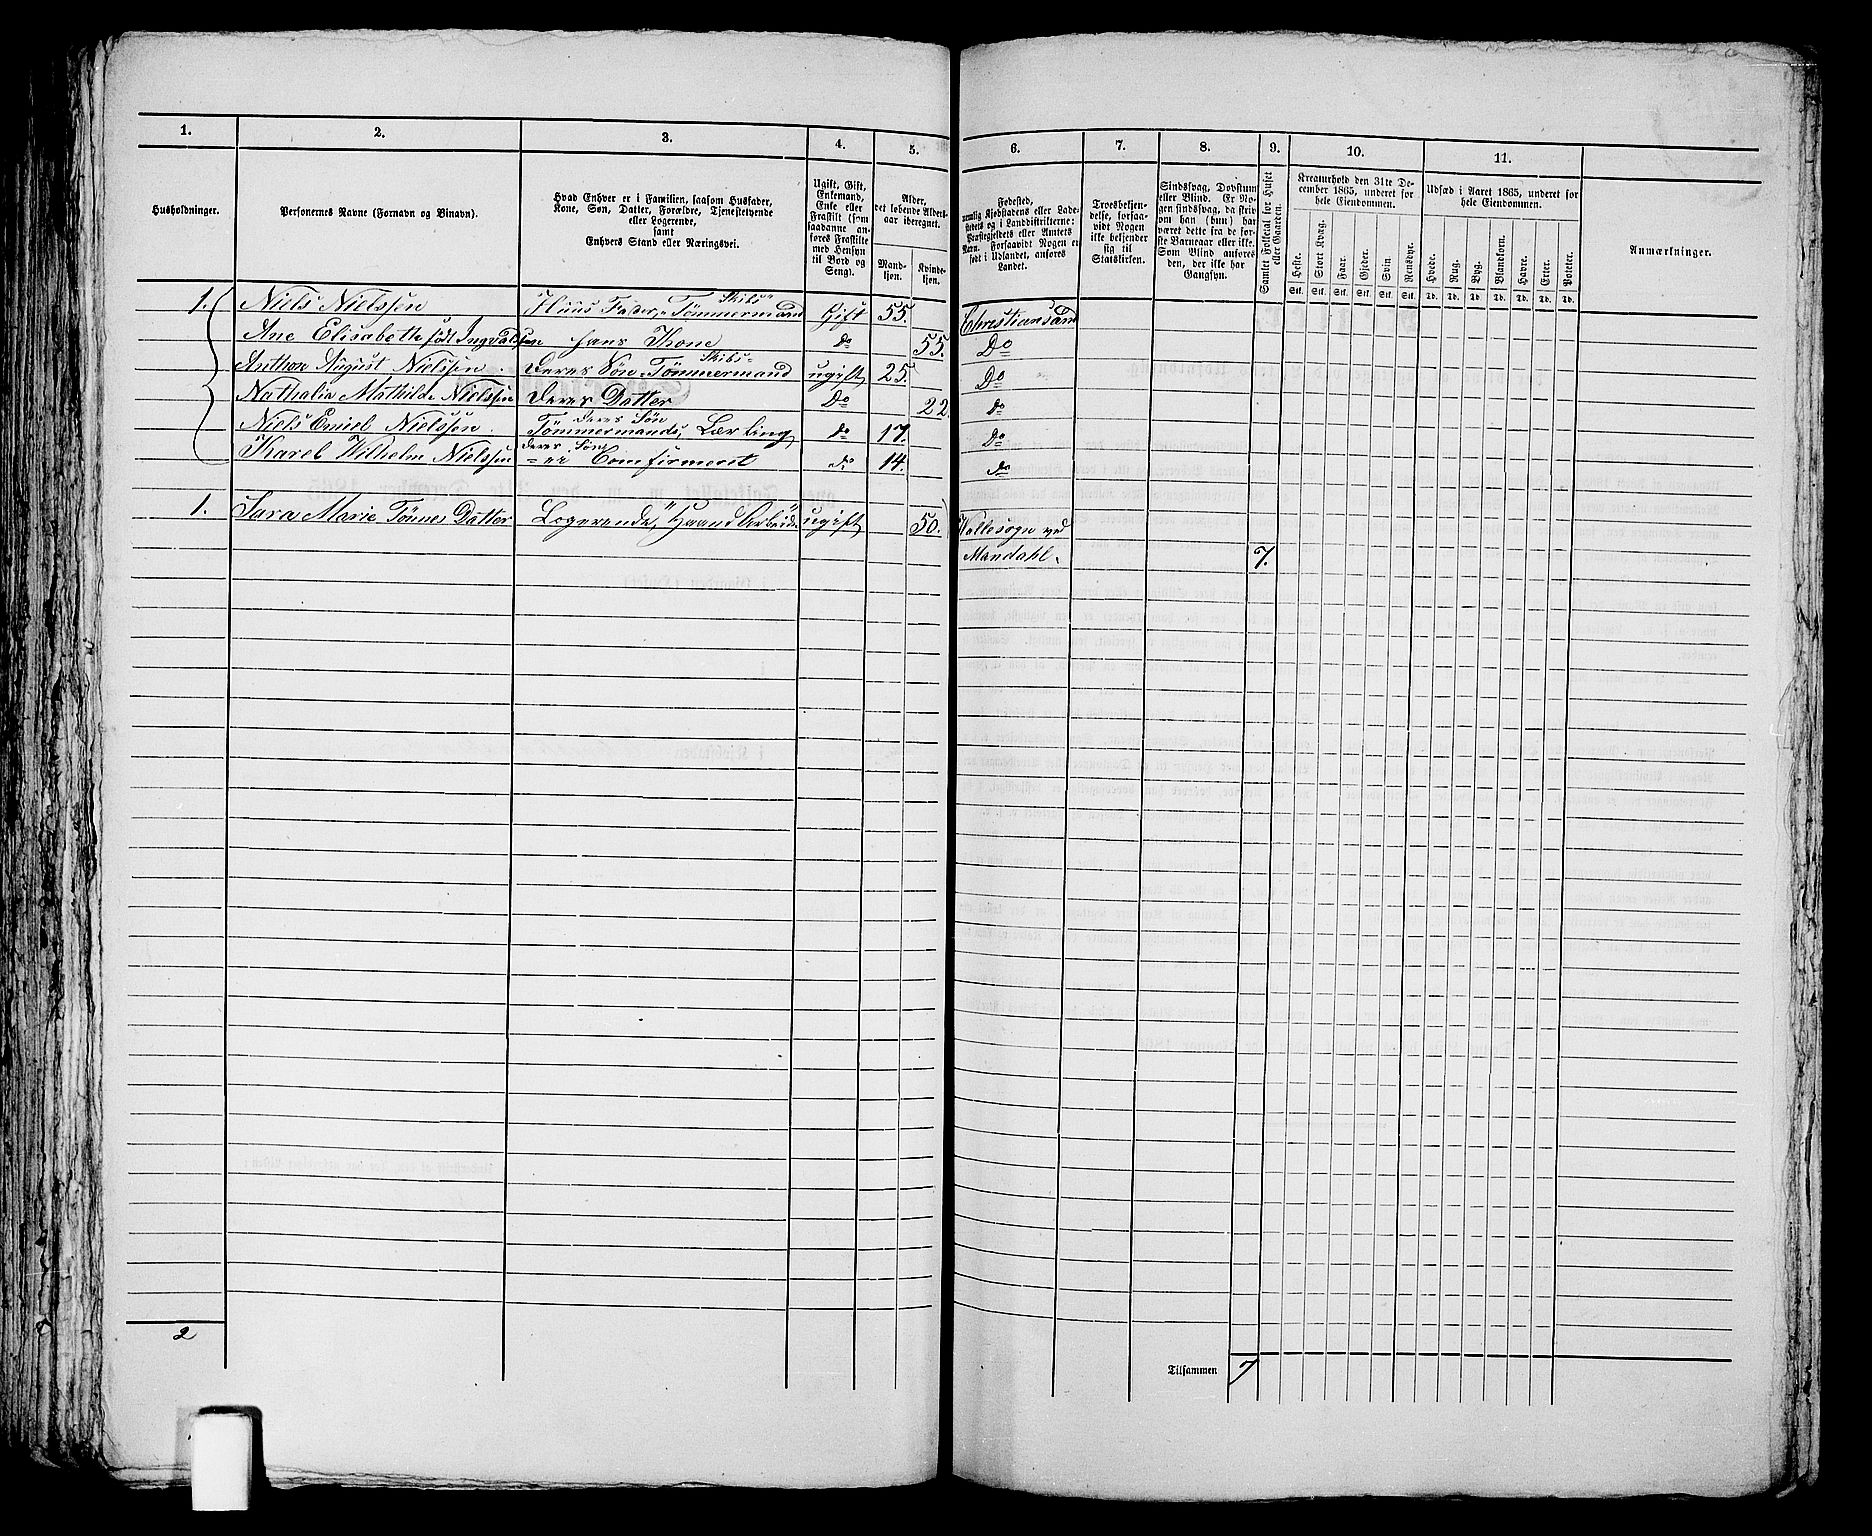 1. 2. 3. 4. 5. 6. 7. 8. 9. 10. 11.
Husholdninger.
Personernes Navne (Fornavn og Binavn).
Hvad Enhver er i Familien, saasom Husfader,
Kone, Søn, Datter, Forældre, Tjenestetyende
eller Logerende,
samt
Enhvers Stand eller Næringsvei.
Ugift, Gift,
Enkemand,
Enke eller
Fraskilt (som
saadanne an-
føres Fraskilte
med Hensyn
til Bord og
Seng).
Alder,
det løbende Alders-
aar iberegnet.
Mand-
kjøn.
Kvinde-
kjøn.
Fødested,
nemlig Kjøbstadens eller Lade-
stedets og i Landdistrikterne:
Præstegjeldets eller Amtets
Navn. Forsaavidt Nogen er
født i Udlandet, anføres
Landet.
Troesbekjen-
delse, forsaa-
vidt Nogen
ikke bekjender
sig til
Statskirken.
Sindssvag, Døvstum
eller Blind. Er No-
gen sindssvag, da skriv
hvorvidt han (hun) har
været dette fra de før-
ste Barneaar eller ikke.
Som Blind anføres
den, der ikke har
Gangsyn.
Samlet Folketal for Huset
eller Gaarden.
Kreaturhold den 31te De-
cember 1865, underet for
hele Eiendommen.
Heste. Stort Kvæg. Faar. Gjeder. Svin. Rensdyr.
Stk. Stk. Stk. Stk. Stk. Stk.
Udsæd i Aaret 1865, underet for
hele Eiendommen.
Hvede. Rug. Byg. Blandkorn. Havre. Erter. Poteter.
Td. Td. Td. Td. Td. Td. Td.
Anmærkninger.
1. Niels Nielssen Huus Fader, Skibs Tømmermand Gift 55. Christiansand
Ane Elisabeth født Ingvaldsen hans Kone do 55. Do
Anthon August Nielssen. Deres Søn Skibs Tømmermand ugift 25. Do
Nathalia Mathilde Nielssen Deres Datter Do 22. do
Niels Emiel Nielssen. Deres Søn Tømmermands Lærling do 17. Do
Karel Wilhelm Nielssen Deres Søn er Comfirmeret do 14. do
1. Sara Marie Tønnes Datter Logerende, Haand Arbeide ugift 50. Hallesogn ved
Mandahl. 7.
2
Tilsammen 7